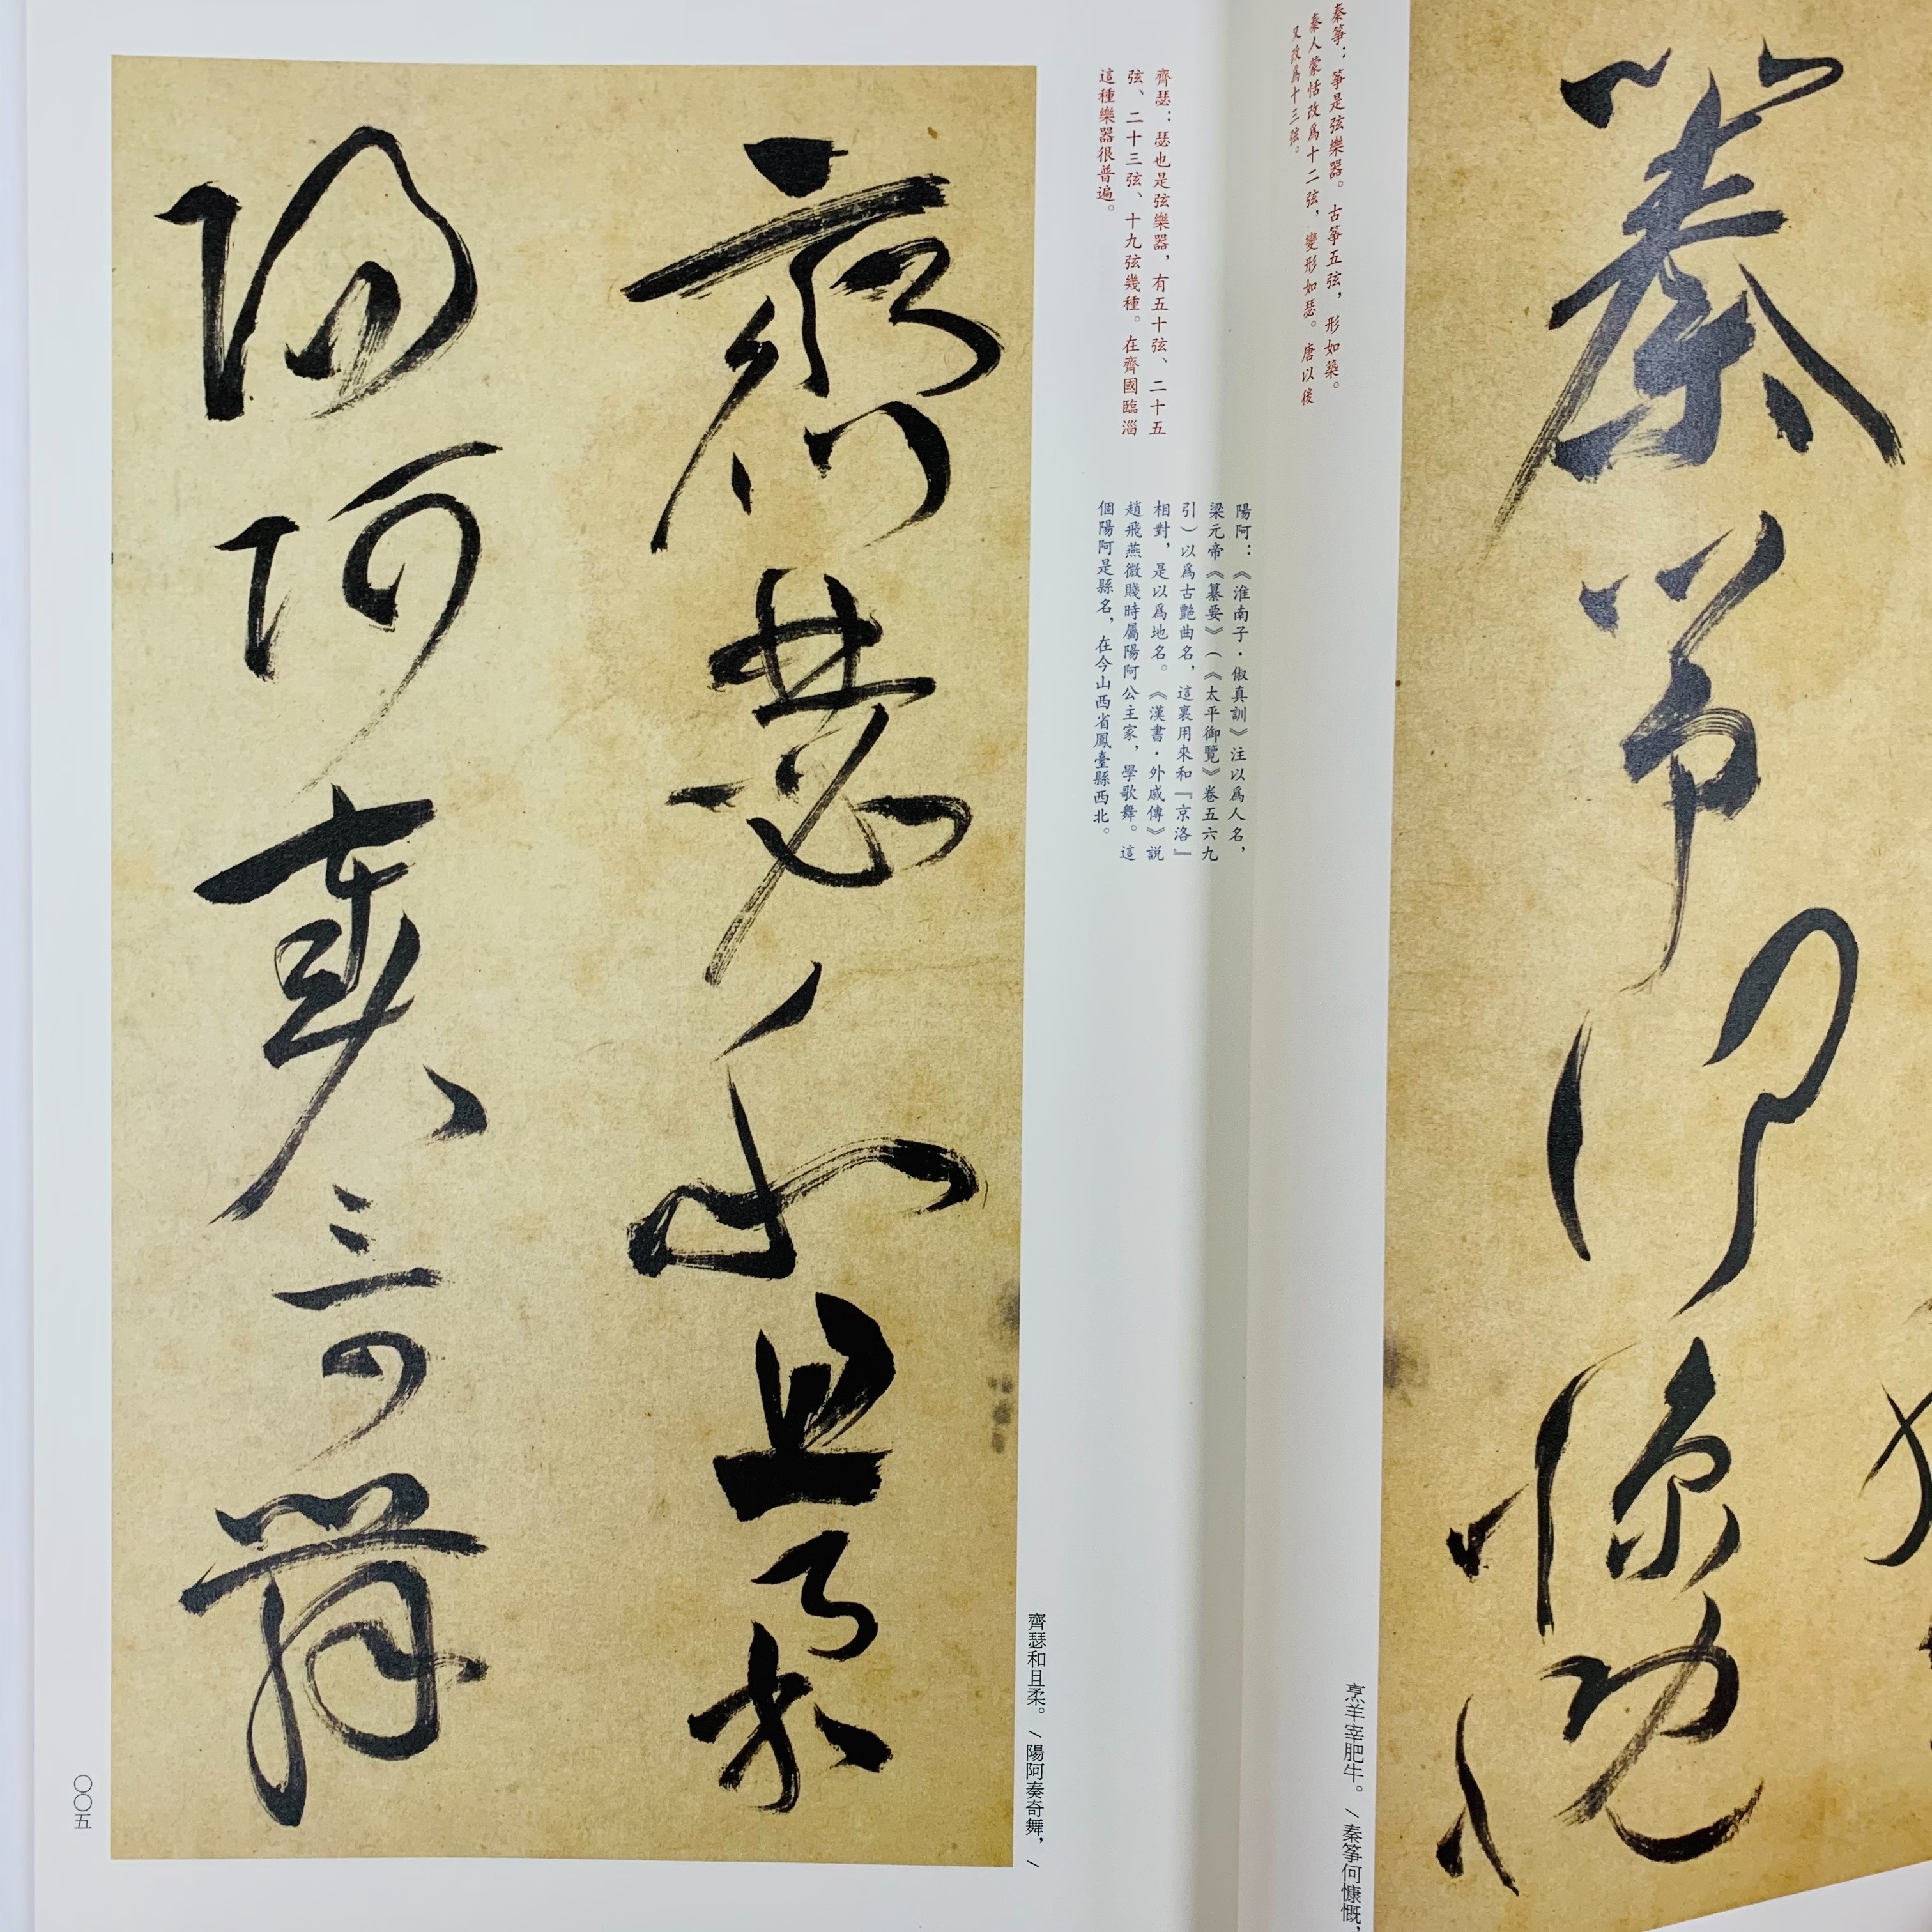 秦箏何慷慨
秦箏：箏是弦樂器。古箏五弦，形如築。
秦人蒙恬改爲十二弦，變形如瑟。唐以後
又改爲十三弦。
烹羊宰肥牛。／秦箏何慷慨，
齊瑟：瑟也是弦樂器，有五十弦、二十五
弦、二十三弦、十九弦幾種。在齊國臨淄
這種樂器很普遍。
陽阿：《淮南子·俶真訓》注以爲人名，
梁元帝《纂要》（《太平御覽》卷五六九
引）以爲古艷曲名，這裏用來和『京洛』
相對，是以爲地名。《漢書·外戚傳》說
趙飛燕微賤時屬陽阿公主家，學歌舞。這
個陽阿是縣名，在今山西省鳳臺縣西北。
齊瑟和且柔。／陽阿奏奇舞，／
齊瑟和且柔
陽阿奏奇舞
〇〇五